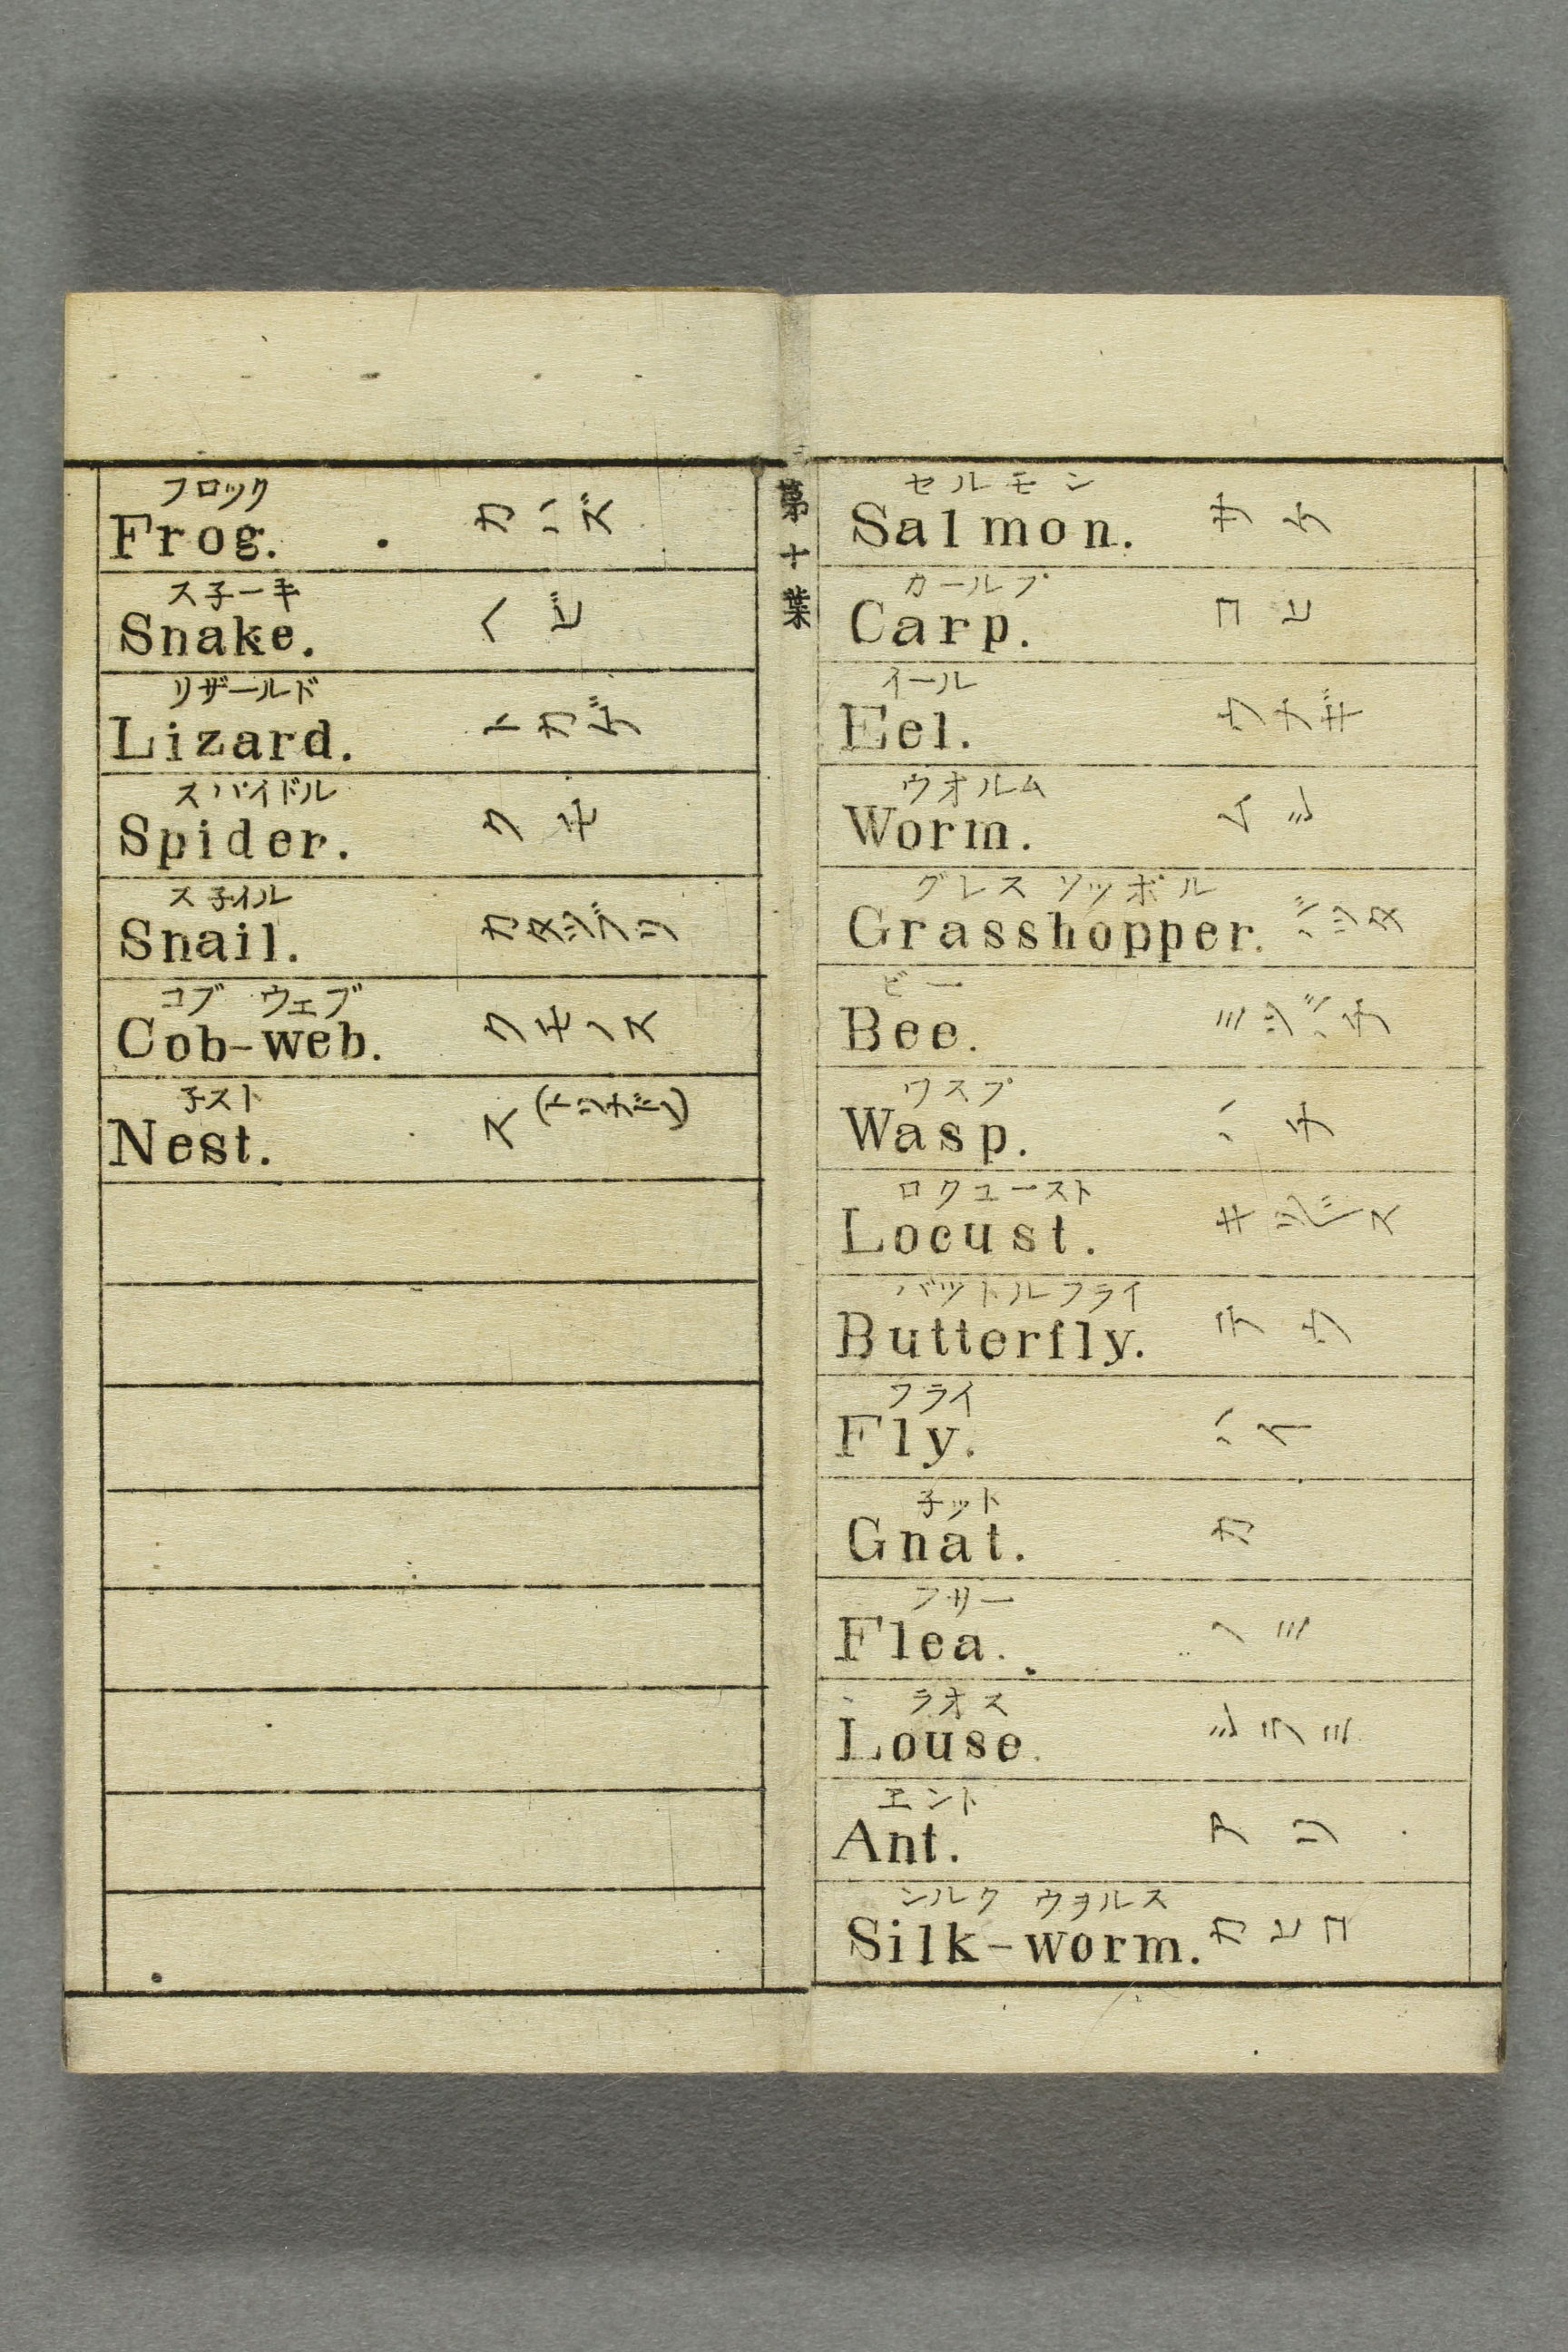 第十葉
セルモン
Salmon. サケ
カールプ
Carp. コヒ
イール
Eel. ウナギ
ウオルム
Worm. ムシ
グレス ソッポル
Grasshopper. バツタ
ビー
Bee. ミツバチ
ワスプ
Wasp. ハチ
ロクユースト
Locust. キリ〴〵ス
バツトルフライ
Butterfly. テウ
フライ
Fly. ハイ
子ット
Gnat. カ
フリー
Flea. ノミ
ラオス
Louse. シラミ
エント
Ant. アリ
シルク ウヲルス
Silk-worm. カヒコ
フロック
Frog. カハズ
ス子ーキ
Snake. ヘビ
リザールド
Lizard. トカゲ
スパイドル
Spider. クモ
ス子イル
Snail. カタツブリ
コブ ウェブ
Cob-web. クモノス
子スト
Nest. ス(トリナドノ)